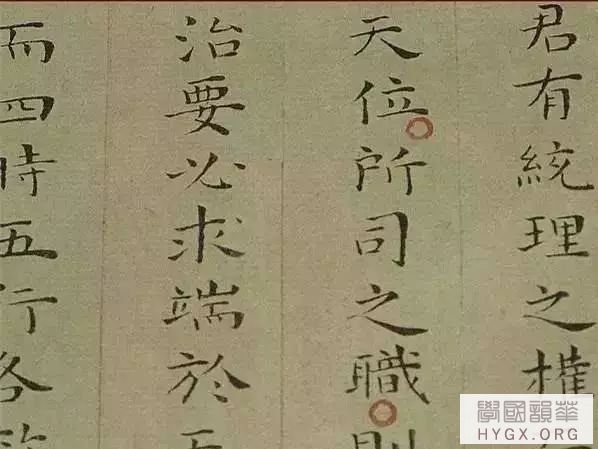 君有統理之權
天位所司之職則
治要必求端於
而四時五行各
學國韻華
HYGX.ORG